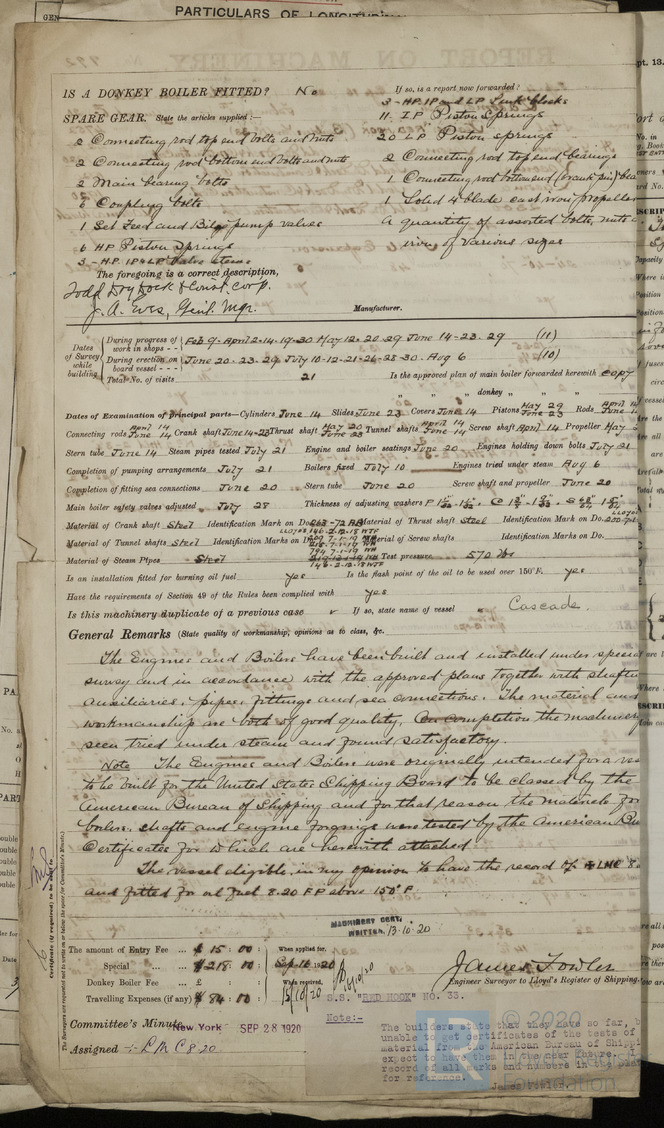 PARTICULARS OF LONGITU
GEN
IS A DONKEY BOILER FITTED? No
If so, is a report now forwarded?
SPARE GEAR. State the articles supplied:—
3 - HP. IP and LP Link blocks
11 IP Piston Springs
2 Connecting rod top end bolts and nuts
20 LP Piston springs
2 Connecting rod bottom end bolts and nuts
2 Connecting rod top end bearings
2 Main bearing bolts
1 Connecting rod bottom end (crank pin) bea
6 Coupling bolts
1 Solid 4 blade cast iron propeller
1 Set Feed and Bilge pump valves
A quantity of assorted bolts, nuts &
6 HP Piston Springs
iron of various sizes
3 - HP. IP & LP Valve stems
The foregoing is a correct description,
Todd Dry Dock & Const. Corp.
J. A. Eves, Genl. Mgr. Manufacturer.
Dates of Survey while building
During progress of work in shops - - Feb 9 - April 2-14-19-30 May 12-20-29 June 14-23-29 (11)
During erection on board vessel - - - June 20-23-29 July 10-12-21-26-28-30. Aug 6 (10)
Total No. of visits 21 Is the approved plan of main boiler forwarded herewith Copy
" " " donkey " " "
Dates of Examination of principal parts—Cylinders June 14 Slides June 23 Covers June 14 Pistons May 29 June 23 Rods April 14 June 1
Connecting rods April 14 June 14 Crank shaft June 14-23 Thrust shaft May 20 June 23 Tunnel shafts April 14 June 14 Screw shaft April 14 Propeller May 2
Stern tube June 14 Steam pipes tested July 21 Engine and boiler seatings June 20 Engines holding down bolts July 21
Completion of pumping arrangements July 21 Boilers fixed July 10 Engines tried under steam Aug 6
Completion of fitting sea connections June 20 Stern tube June 20 Screw shaft and propeller June 20
Main boiler safety valves adjusted July 28 Thickness of adjusting washers
Material of Crank shaft Steel Identification Mark on Do. Material of Thrust shaft Steel Identification Mark on Do.
Material of Tunnel shafts Steel Identification Marks on Do. Material of Screw shafts Identification Marks on Do.
Material of Steam Pipes Steel Test pressure 570 lbs
Is an installation fitted for burning oil fuel yes Is the flash point of the oil to be used over 150°F. yes
Have the requirements of Section 49 of the Rules been complied with yes
Is this machinery duplicate of a previous case If so, state name of vessel Cascade.
General Remarks (State quality of workmanship, opinions as to class, &c.
The Engines and Boilers have been built and installed under special
survey and in accordance with the approved plans together with shafts
auxiliaries, pipes, fittings and sea connections. The material and
workmanship are both of good quality, On completion the machinery
seen tried under steam and found satisfactory.
Note The Engines and Boilers were originally intended for a ves
to be built for the United States Shipping Board to be classed by the
American Bureau of Shipping and for that reason the materials for
boilers, shafts and engine forgings were tested by the American Bu
Certificates for which are herewith attached
The vessel eligible in my opinion to have the record of + LMC 8.
and fitted for oil fuel 8.20 FP above 150°F.
MACHINERY CERT.
WRITTEN. 13.10.20
The amount of Entry Fee ... $ 15 : 00 : When applied for,
Special ... $ 218 : 00 : Sep. 16 1920
Donkey Boiler Fee ... £ : : When received,
Travelling Expenses (if any) $ 84 : 00 :
James Fowler
Engineer Surveyor to Lloyd's Register of Shipping.
S.S. "RED HOOK" NO. 33.
Committee's Minute New York SEP 28 1920
Assigned + LMC 8.20
Note:-
The builders state that they have so far, b
unable to get certificates of the tests of
material from the American Bureau of Shippi
expect to have them in the near future. I
record of all marks and numbers in the
for reference.
James Fowler.
Certificate (if required) to be sent to
The Surveyors are requested not to write on or below the space for Committee's Minute.
© 2020
Foundation